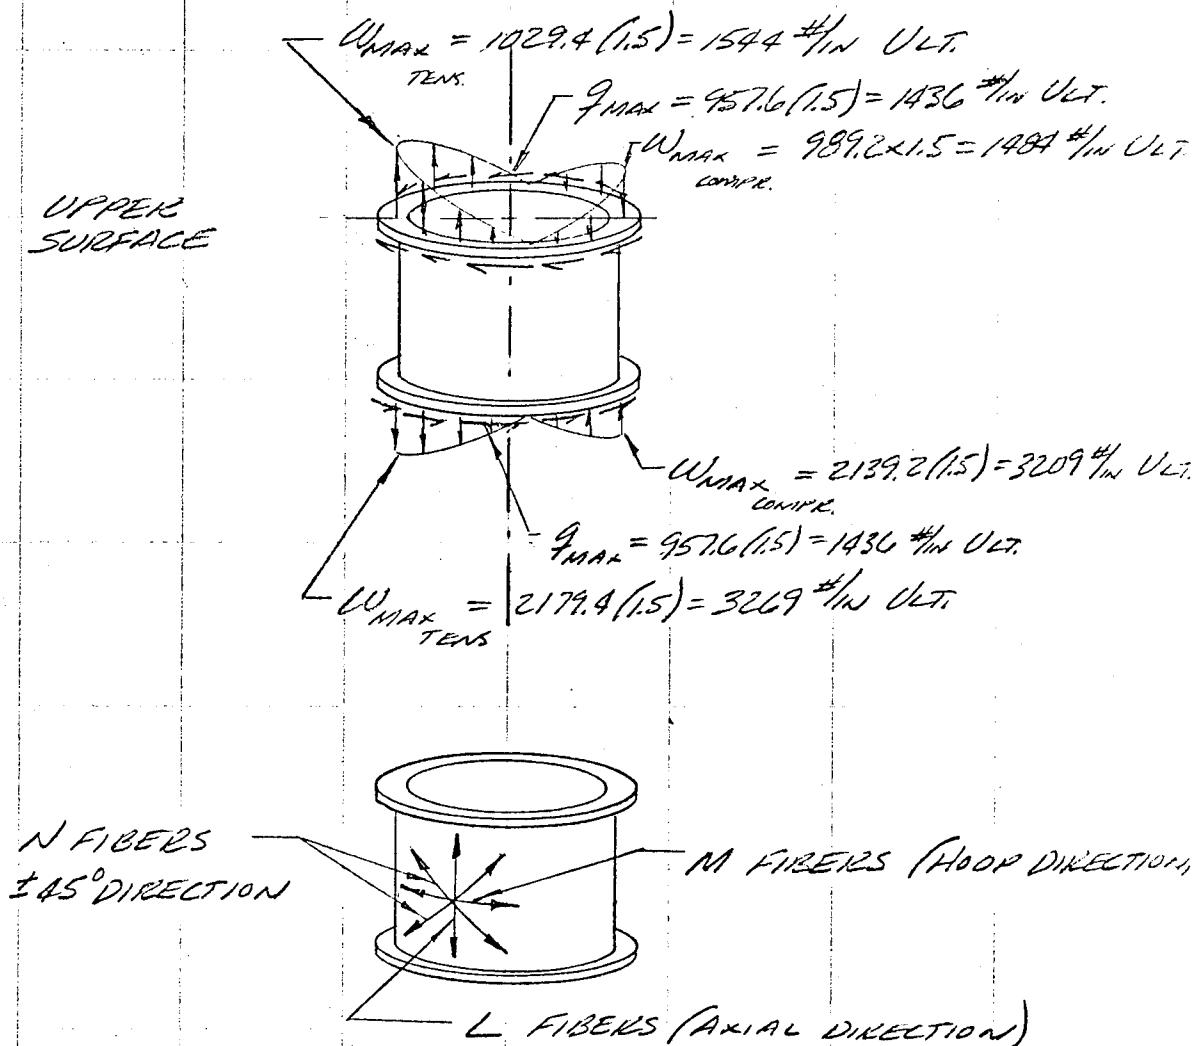 WMAX TENS. = 1029.4 (1.5) = 1544 #/IN ULT.
qMAX = 957.6 (1.5) = 1436 #/IN ULT.
WMAX COMPR. = 989.2x1.5 = 1484 #/IN ULT.
UPPER
SURFACE
WMAX COMPR. = 2139.2 (1.5) = 3209 #/IN ULT.
qMAX = 957.6 (1.5) = 1436 #/IN ULT.
WMAX TENS = 2179.4 (1.5) = 3269 #/IN ULT.
N FIBERS
±45° DIRECTION
M FIBERS (HOOP DIRECTION)
L FIBERS (AXIAL DIRECTION)